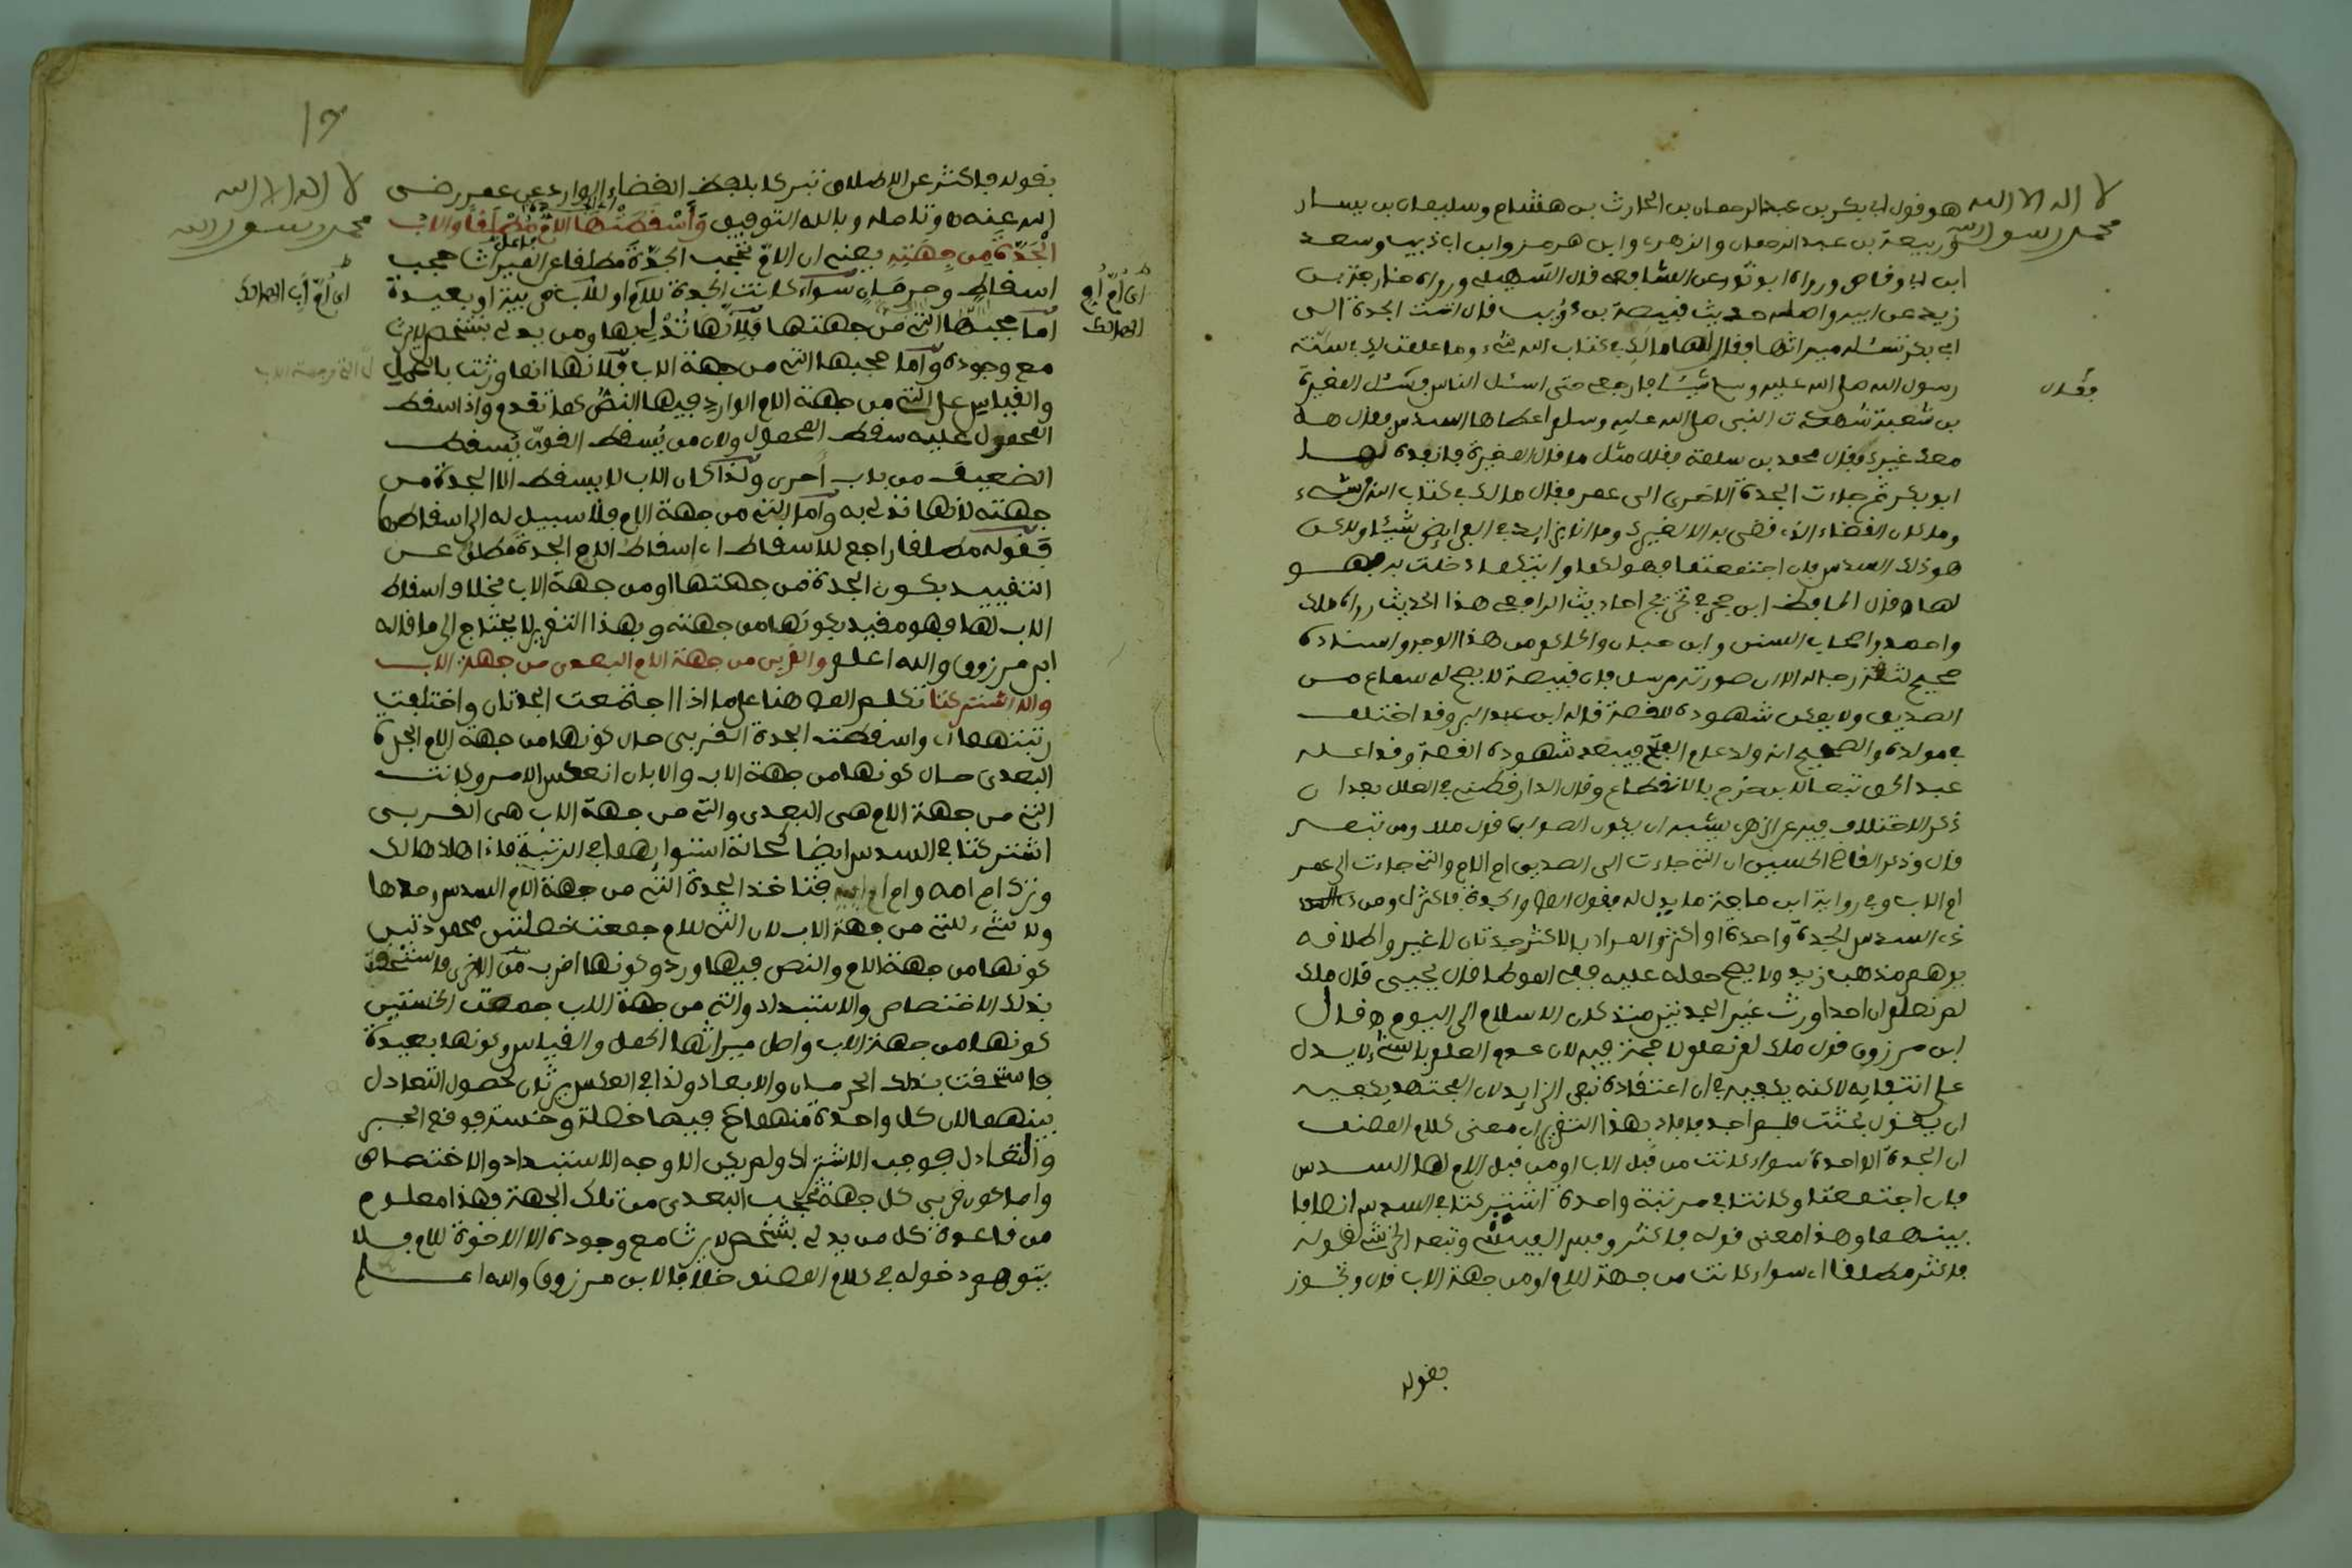 لا اله الا الله
محمد رسول الله
هو قول ابي بكر بن عبد الرحمان بن الحارث بن هشام وسليمان بن يسار
وربيعة بن عبد الرحمان والزهري وابن هرمز وابن ابي ذيب وسعد
ابن ابي وقاص ورواه ابو ثور عن الشافعي قال السهيلي ورواه خارجة بن
زيد عن ابيه واصله حديث قبيصة بن ذؤيب قال اتت الجدة الى
ابي بكر تسئله ميراثها فقال لها مالك في كتاب الله شيء وما علمت لك في سنة
رسول الله صلى الله عليه وسلم شيئا فارجعي حتى اسئل الناس فسئل المغيرة
فقال
بن شعبة شهدت النبي صلى الله عليه وسلم اعطاها السدس فقال هل
معك غيرك فقال محمد بن سلمة فقال مثل ما قال المغيرة فانفذه لها
ابو بكر ثم جاءت الجدة الاخرى الى عمر فقال مالك في كتاب الله شيء
وما كان القضاء الذي قضى به الا لغيرك وما انا بزايد في الفرايض شيئا ولاكن
هو ذلك السدس فان اجتمعتما فهو لكما وايتكما خلت به فهو
لها وقال الحافظ ابن حجر في تخريج احاديث الرافعي هذا الحديث رواه ملك
واحمد واصحاب السنن وابن حبان والحاكم من هذا الوجه واسناده
صحيح لثقة رجاله الا ان صورته مرسل فان قبيصة لا يصح له سماع من
الصديق ولا يمكن شهوده للقصة قاله ابن عبد البر وقد اختلف
في مولده والصحيح انه ولد عام الفتح فيبعد شهوده القصة وقد اعله
عبد الحق تبعا لابن حزم بالانقطاع وقال الدارقطني في العلل بعد ان
ذكر الاختلاف فيه عن الزهري يشبه ان يكون الصواب قول ملك ومن تبعه
قال وذكر القاضي الحسين ان التي جاءت الى الصديق ام الام والتي جاءت الى عمر
ام الاب وفي رواية ابن ماجة ما يدل له فقول المص والجدة فاكثر اي ومن ذوي
السدس الجدة واحدة او اكثر والمراد بالاكثر جدتان لا غير واطلاقه
يوهم مذهب زيد ولا يصح حمله عليه ففي الموطا قال يحيى قال ملك
لم نعلم ان احدا ورث غير الجدتين منذ كان الاسلام الى اليوم وقال
ابن مرزوق قول ملك لم نعلم لا حجة فيه لان عدم العلم بالشيء لا يدل
على انتفايه لاكنه يكفيه في ان اعتقاده نفي الزايد لان المجتهد يكفيه
ان يقول بحثت فلم اجد فافاد بهذا التقرير ان معنى كلام المصنف
ان الجدة الواحدة سواء كانت من قبل الاب او من قبل الام لها السدس
فان اجتمعتا وكانتا في مرتبة واحدة اشتركتا في السدس انصافا
بينهما وهذا معنى قوله فاكثر وتبعه الخرشي لقوله
فاكثر مطلقا اي سواء كانت من جهة الام او من جهة الاب قال وتجوز
بقوله
لا اله الا الله
محمد رسول الله
بقوله فاكثر عن الاطلاق تبركا بلفظ القضاء الوارد عن عمر رضي
الله عنه وتامله وبالله التوفيق وأسقطتها الأم مطلقا والاب
الجدة من جهته يعني ان الام تحجب الجدة مطلقا عن الميراث حجب
اسقاط وحرمان سواء كانت الجدة للام او للاب قريبة او بعيدة
اي ام ام
الهالك
اي ام اب الهالك
اما حجبها التي من جهتها فلانها تدلي بها ومن يدلي بشخص لا يرث
مع وجوده واما حجبها التي من جهة الاب فلانها انما ورثت بالحمل
والقياس على التي من جهة الام الوارد فيها النص كما تقدم واذا سقط
المحمول عليه سقط المحمول ولان من يسقط القوي يسقط
الضعيف من باب احرى ولذا كان الاب لا يسقط الا الجدة من
جهته لانها تدلي به واما التي من جهة الام فلا سبيل له الى اسقاطها
فقوله مطلقا راجع للاسقاط اي اسقاط الام الجدة مطلق عن
التقييد بكون الجدة من جهتها او من جهة الاب بخلاف اسقاط
الاب لها فهو مقيد بكونها من جهته وبهذا التقرير لا يحتاج الى ما قاله
ابن مرزوق والله اعلم والقربى من جهة الام البعدى من جهة الاب
والا اشتركتا تكلم المص هنا على ما اذا اجتمعت الجدتان واختلفت
رتبتهما اي واسقطت الجدة القربى حال كونها من جهة الام الجدة
البعدى حال كونها من جهة الاب والا بان انعكس الامر وكانت
التي من جهة الام هي البعدى والتي من جهة الاب هي القربى
اشتركتا في السدس ايضا كحالة استوايهما في الرتبة فاذا هلك هالك
وترك ام امه وام ام ابيه فتاخذ الجدة التي من جهة الام السدس وحدها
ولا شيء للتي من جهة الاب لان التي للام جمعت خصلتين محمودتين
كونها من جهة الام والنص فيها ورد وكونها اقرب من الاخرى فاستحقت
بذلك الاختصاص والاستبداد والتي من جهة الاب جمعت الخستين
كونها من جهة الاب واصل ميراثها الحمل والقياس وكونها بعيدة
فاستحقت بذلك الحرمان والابعاد ولذا في العكس يرثان لحصول التعادل
بينهما لان كل واحدة منهما فيها خصلة وخسة فوقع الجبر
والتعادل فوجب الاشتراك ولم يكن الاوجه الاستبداد والاختصاص
واما كون قربى كل جهة تحجب البعدى من تلك الجهة فهذا معلوم
من قاعدة كل من يدلي بشخص لا يرث مع وجوده الا الاخوة للام فلا
يتوهم دخوله في كلام المصنف خلافا لابن مرزوق والله اعلم